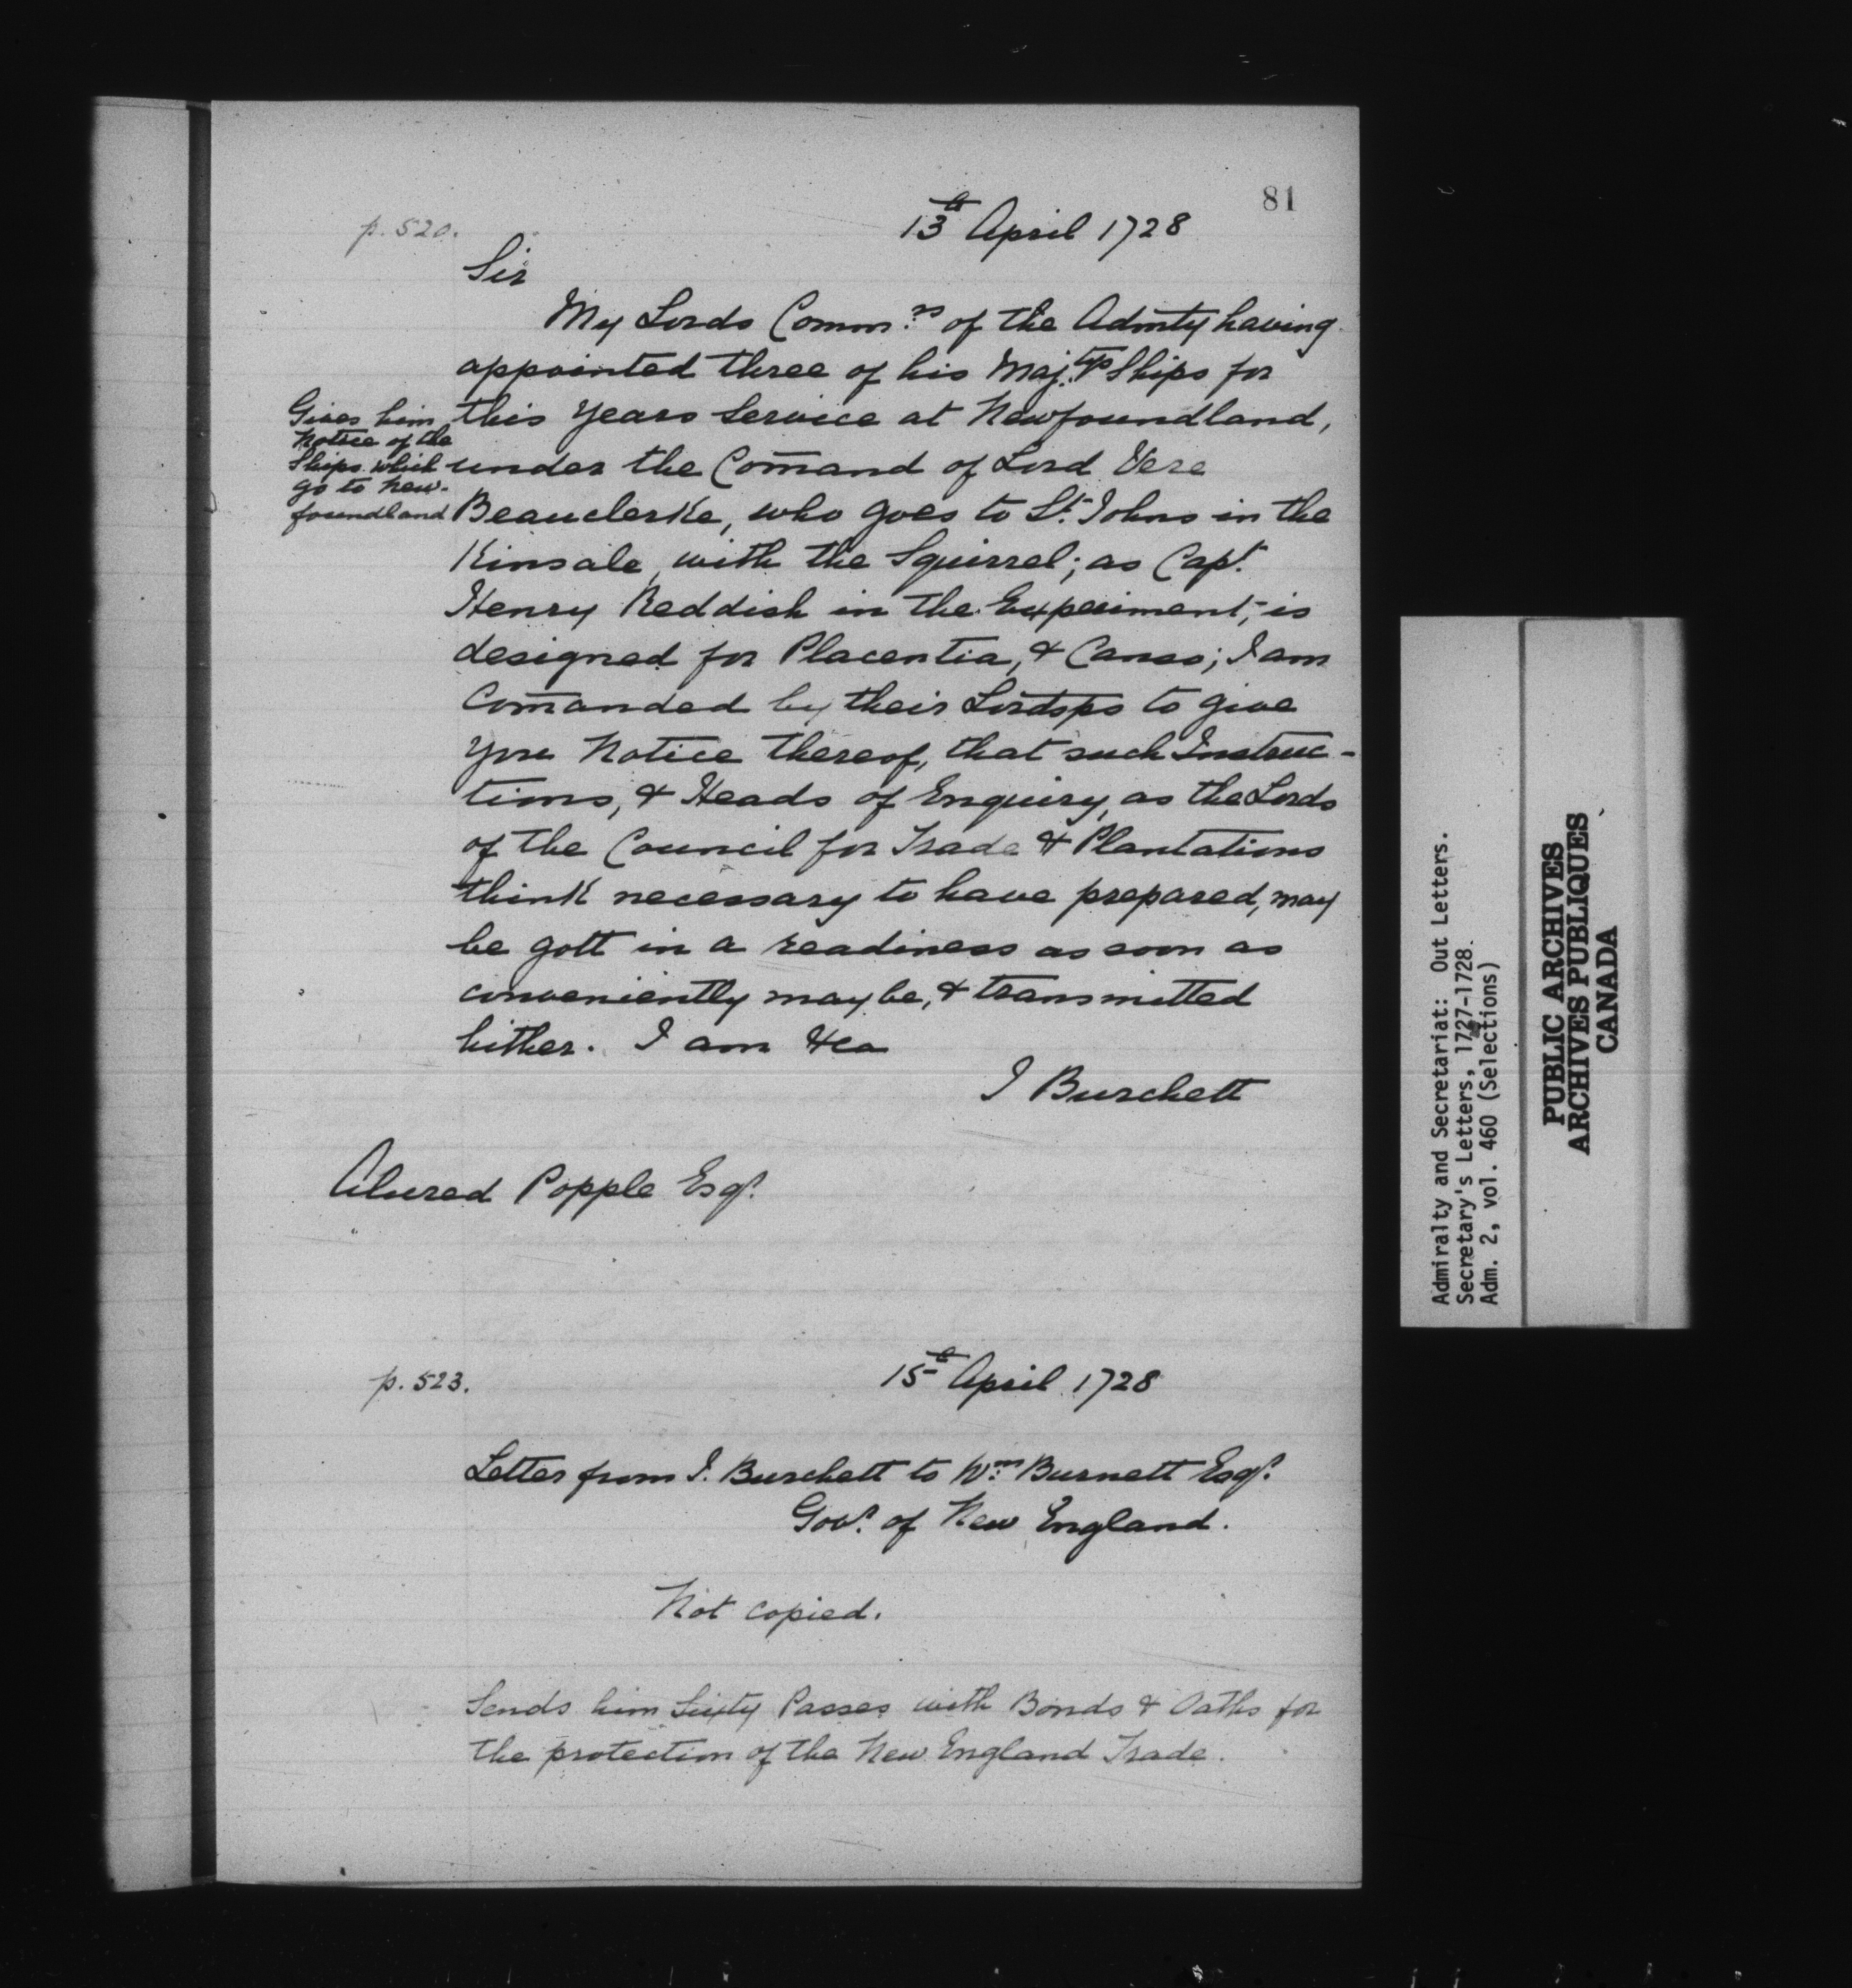 81
p. 520.
13th April 1728
Sir
My Lords Commrs of the Admty having
appointed three of his Majtys Ships for
this Years Service at Newfoundland,
under the Com̄and of Lord Vere
Beauclerke, who goes to St Johns in the
Kinsale, with the Squirrel; as Capt
Henry Reddish in the Experiment, is
designed for Placentia, & Canso; I am
Com̄anded by their Lordsps to give
you Notice thereof, that such Instruc-
tions, & Heads of Enquiry, as the Lords
of the Council for Trade & Plantations
think necessary to have prepared, may
be gott in a readiness as soon as
conveniently may be, & transmitted
hither. I am &ca
J Burchett
Gives him
Notice of the
Ships which
go to New-
foundland
Alured Popple Esqr
p. 523.
15th April 1728
Letter from J. Burchett to Wm Burnett Esqr
Govr of New England.
Not copied.
Sends him Sixty Passes with Bonds & Oaths for
the protection of the New England Trade.
Admiralty and Secretariat: Out Letters.
Secretary's Letters, 1727-1728.
Adm. 2, vol. 460 (Selections)
PUBLIC ARCHIVES
ARCHIVES PUBLIQUES
CANADA